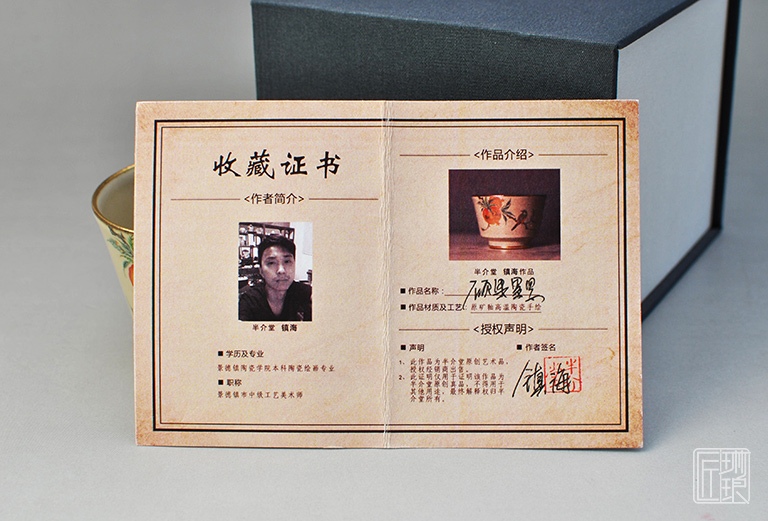 收藏证书
<作者简介>
半介堂 镇海
■ 学历及专业
景德镇陶瓷学院本科陶瓷绘画专业
■ 职称
景德镇市中级工艺美术师
<作品介绍>
半介堂 镇海作品
■ 作品名称:
■ 作品材质及工艺: 原矿釉高温陶瓷手绘
<授权声明>
■ 声明
1、此作品为半介堂原创艺术品,
授权经销商出售。
2、此证明仅用于证明该作品为
半介堂原创真品,不得用于
其他用途,最终解释权归半
介堂所有。
■ 作者签名
镇海